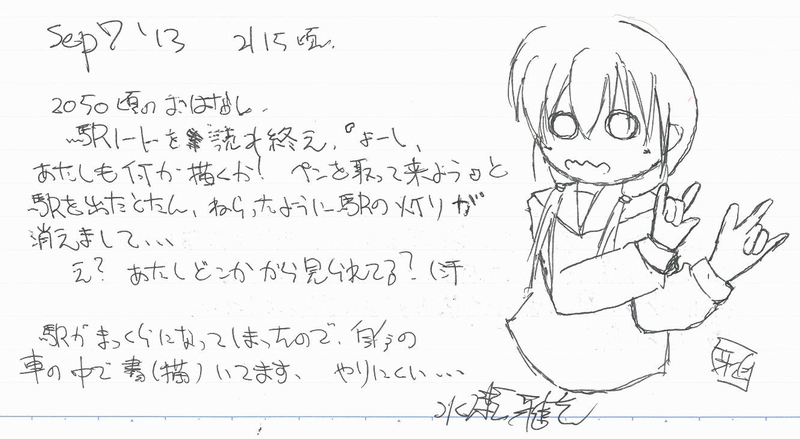 Sep 7 '13 2115頃.
2050頃のおはなし.
駅ノートを読み終え,『よーし,
あたしも何か描くか! ペンを取って来よう』と
駅を出たとたん、ねらったように駅の灯りが
消えまして、、、
え? あたしどこかから見られてる? (汗
駅がまっくらになってしまったので、自分の
車の中で書(描)いてます、 やりにくい...